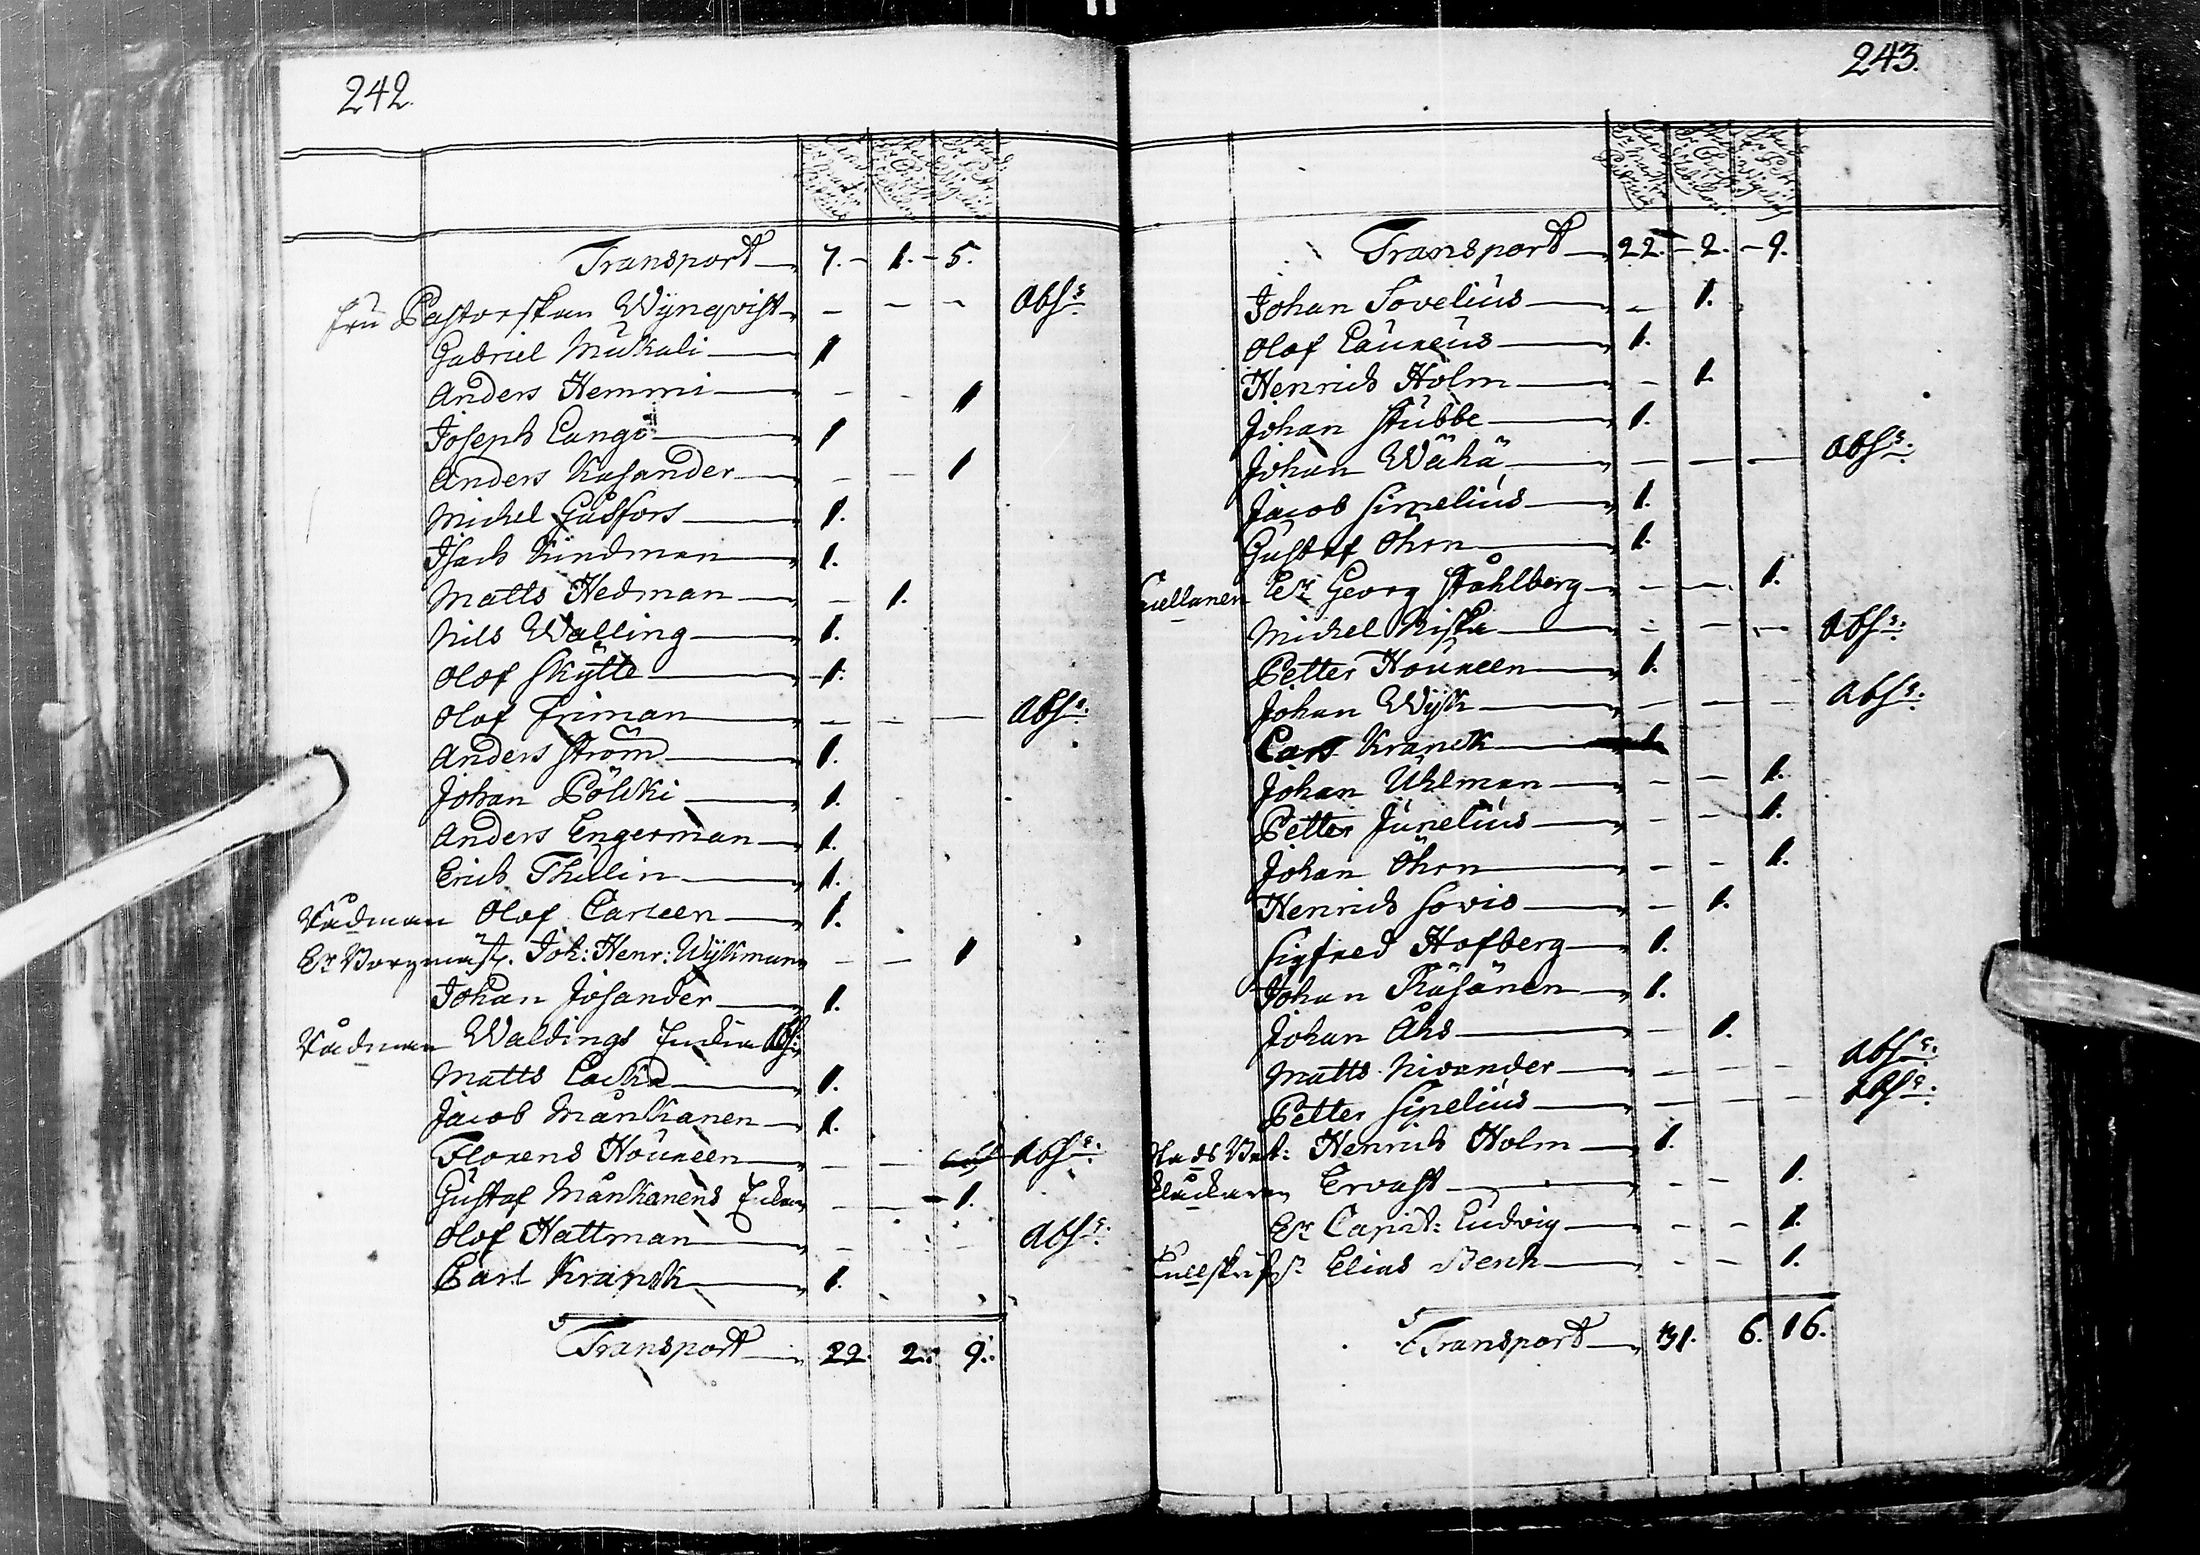 242.
Transport 7. - 1. - 5.
Fru Pastorskan Wynqvist - - - Abs:
Gabriel Mukali 1
Anders Hemmi - - 1
Joseph Lang 1
Anders Kasander - - 1
Michel Gusfors 1.
Isach Kindman 1.
Matts Hedman - 1.
Nils Walling 1.
Olof Skÿtte 1.
Olof Friman - - - Abs:
Anders Ström 1.
Johan Pölkki 1.
Anders Engerman 1.
Erich Thulin 1.
Rådman Olof Carleen 1.
Hr Borgmäst. Joh: Henr: Wÿkman - - 1
Johan Josander 1.
Rådman Waldings Enkia Abs:
Matts Lacka 1.
Jacob Månkanen 1.
Florens Houreen - - Abs:
Gustaf Månkanens Enkia - - 1.
Olof Hattman - - - Abs:
Carl Kranck 1.
Transport 22. 2. 9.
243.
Transport 22. - 2. - 9.
Johan Sovelius - 1.
Olof Laureus 1.
Henrich Holm - 1.
Johan Stubbe 1.
Johan Wähä - - - Abs:
Jacob Simelius 1.
Gustaf Öhrn 1.
Hr Georg Ståhlberg - - 1.
Michel Kiska - - - Abs:
Petter Houreen 1.
Johan Wÿk - - - Abs:
Lars Kranck
Johan Uhlman - - 1.
Petter Junelius - - 1.
Johan Öhrn - - 1.
Henrich Sovio - 1.
Sigfred Hofberg 1.
Johan Räsänen 1.
Johan Åhs - 1.
Matts Nivander - - - Abs:
Petter Sipelius - - - Abs:
Henrich Holm 1.
Klåckaren Ervast - - 1.
Hr Capit: Ludvig - - 1.
Elias Benk - - 1.
Transport 31. 6. 16.